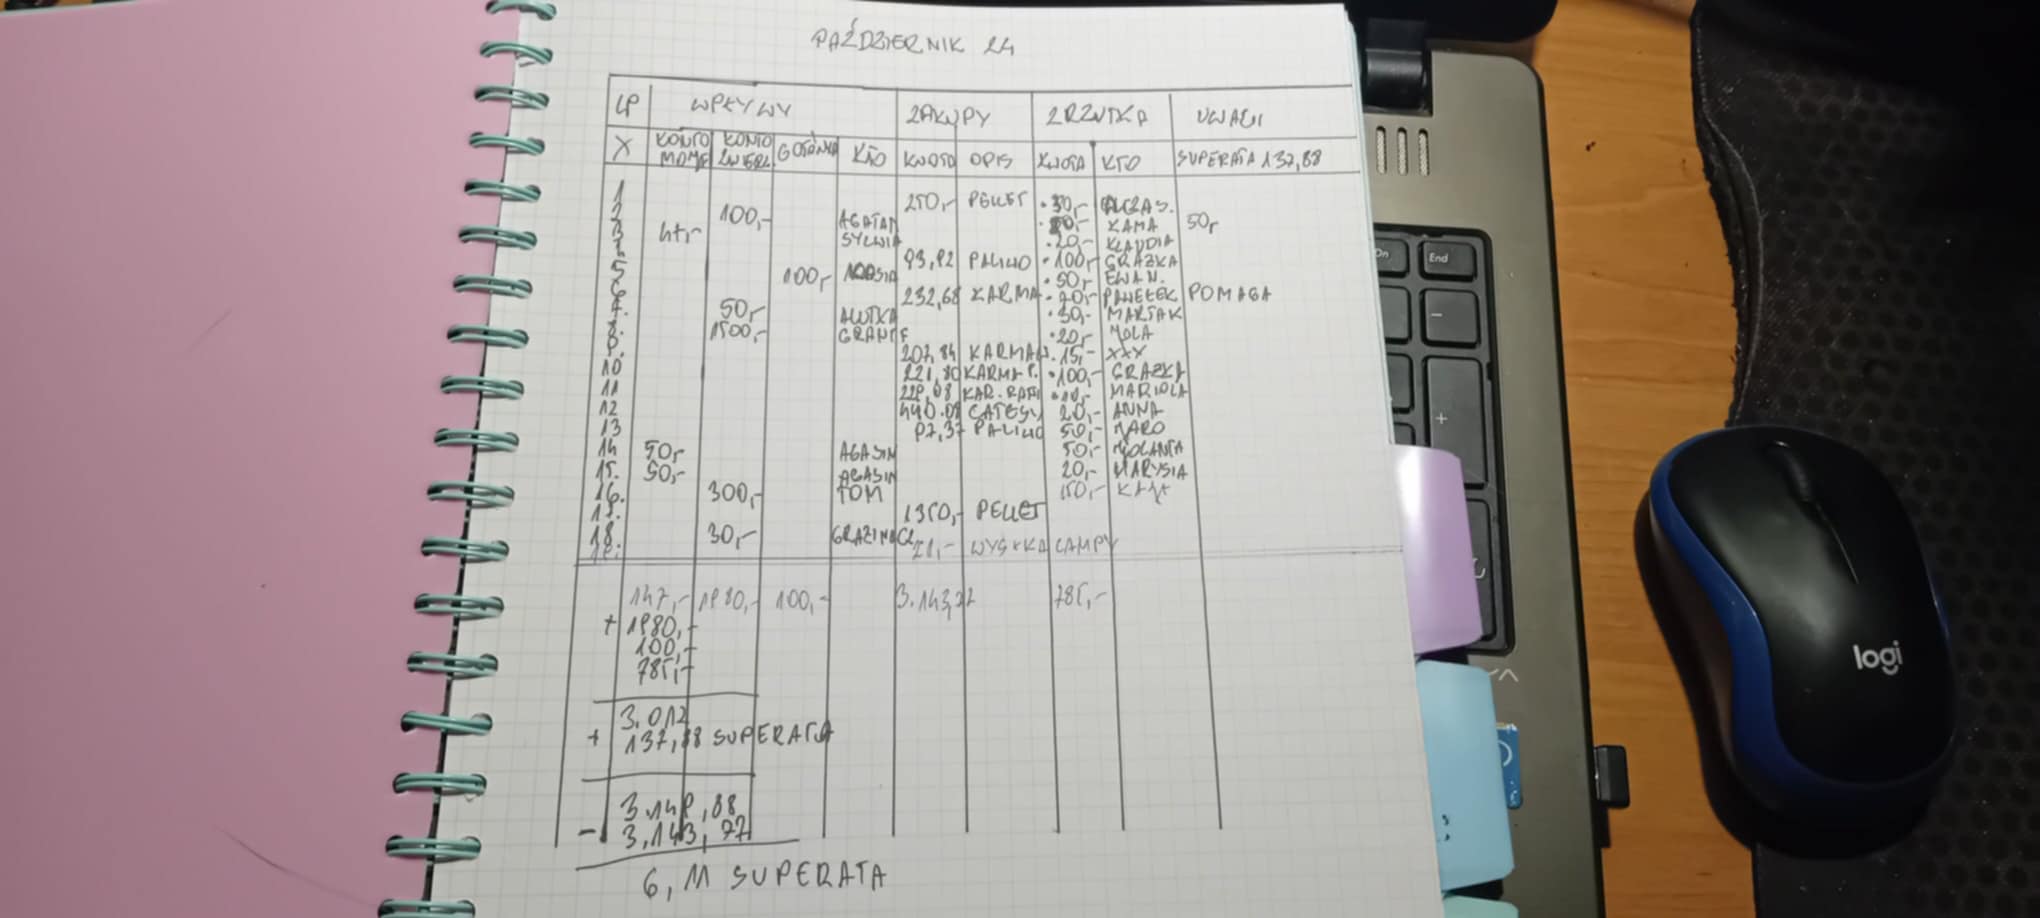 PAŹDZIERNIK 24
LP WPŁYWY ZAKUPY ZRZUTKA UWAGI
X KONTO MOJE KONTO ZWIERZ. GOTÓWKA KTO KWOTA OPIS KWOTA KTO SUPERATA 137,88
1 250,- PELLET 30,-
2 100,- AGATAN KAMA 50,-
3 47,- SYLWIA 20,- KLAUDIA
93,92 PALIWO 100,- GRAŻKA
5 100,- KASIA 50,- EWA N.
6 232,68 KARMA 20,- PAWEŁEK POMAGA
7. 50,- ALUTKA 30,- MARTAK
8. 1500,- GRANT 20,- JOLA
9. 207,84 KARMA 15,- XXX
10 221,80 KARMA P. 100,- GRAŻKA
11 229,08 MARIOLA
12 440.08 20,- ANNA
13 97,37 PALIWO 50,- JARO
14 50,- AGASIN 50,- JOLANTA
15. 50,- AGASIN 20,- MARYSIA
16. 300,- TOM 150,-
1350,- PELLET
18. 30,- GRAŻYNA
21,- WYSYŁKA LAMPY
147,- 1980,- 100,- 3.143,77 785,-
+ 1980,-
100,-
785,-
3.012
+ 137,88 SUPERATA
3.149,88
- 3,143,77
6,11 SUPERATA
End
-
+
logi